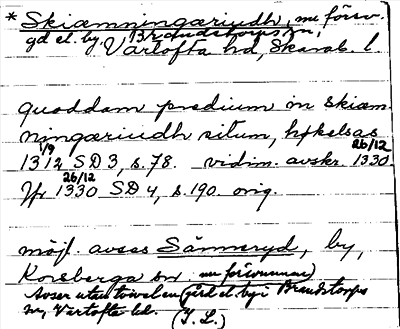 * Skiæmningæriudh, nu försv.
gd el. by, Brandstorps sn,
Vartofta hd, Skarab. l.
quoddam predium in skiæm
ningæriudh situm, hökelsas
1/9 26/12
1312 SD 3, s. 78. vidim. avskr. 1330
26/12
Jfr 1330 SD 4, s. 190. orig.
möjl. avses Sämneryd, by,
Korsberga sn nu försvunnen)
Avser utan tvivel en gård el. by i Brandstorps
sn, Vartofta hd. (I. L.)